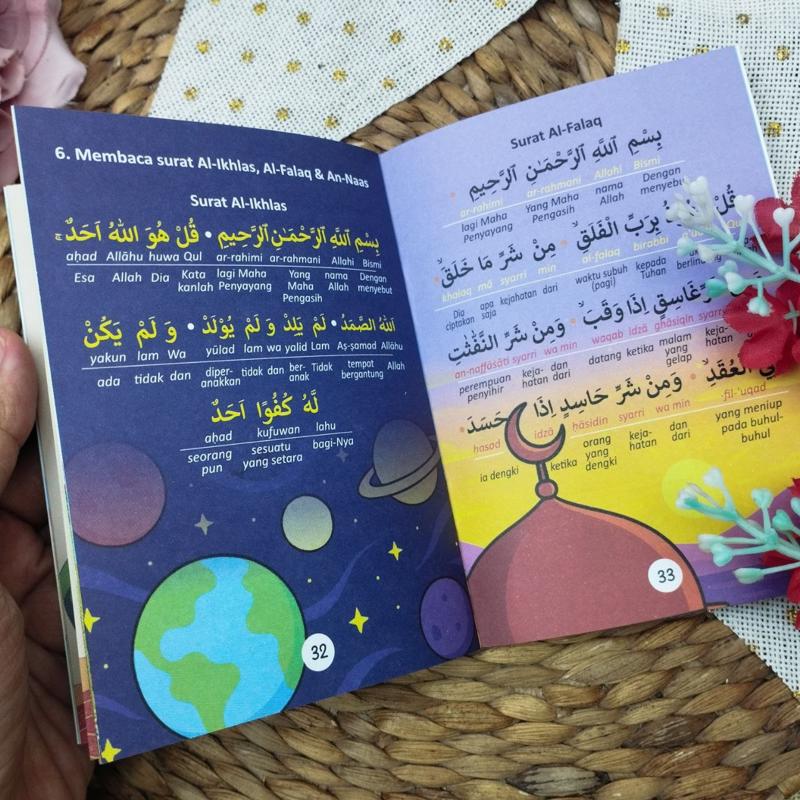 6. Membaca surat Al-Ikhlas, Al-Falaq & An-Naas
Surat Al-Ikhlas
بِسْمِ اللّٰهِ الرَّحْمٰنِ الرَّحِيْمِ • قُلْ هُوَ اللّٰهُ اَحَدٌۚ
aḥad Allāhu huwa Qul ar-rahimi ar-rahmani Allahi Bismi
Esa Allah Dia Kata kanlah lagi Maha Penyayang Yang Maha Pengasih nama Allah Dengan menyebut
اَللّٰهُ الصَّمَدُ • لَمْ يَلِدْ وَلَمْ يُوْلَدْ • وَلَمْ يَكُنْ
yakun lam Wa yūlad lam wa yalid Lam Aṣ-ṣamad Allāhu
ada tidak dan diper-anakkan tidak dan ber-anak Tidak tempat bergantung Allah
لَّهٗ كُفُوًا اَحَدٌ
aḥad kufuwan lahu
seorang pun sesuatu yang setara bagi-Nya
32
Surat Al-Falaq
بِسْمِ اللّٰهِ الرَّحْمٰنِ الرَّحِيْمِ
ar-rahimi ar-rahmani Allahi Bismi
lagi Maha Penyayang Yang Maha Pengasih nama Allah Dengan menyebut
قُلْ بِرَبِّ الْفَلَقِۙ مِنْ شَرِّ مَا خَلَقَۙ
khalaq mā syarri min al-falaq birabbi
Dia ciptakan apa saja kejahatan dari waktu subuh (pagi) kepada Tuhan
غَاسِقٍ اِذَا وَقَبَۙ وَمِنْ شَرِّ النَّفّٰثٰتِ
an-naffāṡāti syarri wa min waqab idzā ghāsiqin syarri
perempuan penyihir keja-hatan dan dari datang ketika malam gelap
الْعُقَدِۙ وَمِنْ شَرِّ حَاسِدٍ اِذَا حَسَدَ
hasod idzā hāsidin syarri wa min fil-'uqad
ia dengki ketika orang yang dengki keja-hatan dan dari yang meniup pada buhul-buhul
33